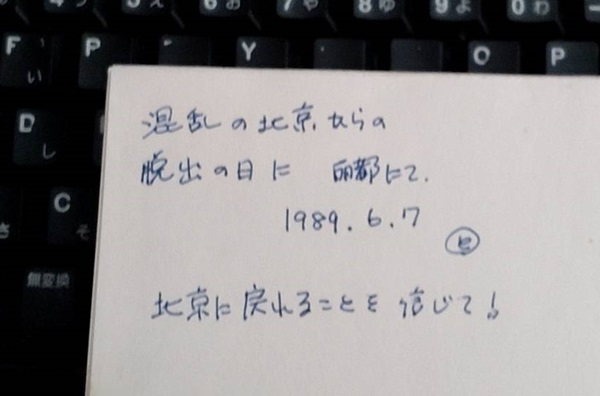 6 お 7 や 8 ゆ 9 よ 0 わ
F い P Y O P
D し
C そ
さ
無変換
混乱の北京からの
脱出の日に 丽都にて.
1989.6.7
北京に戻れることを信じて!